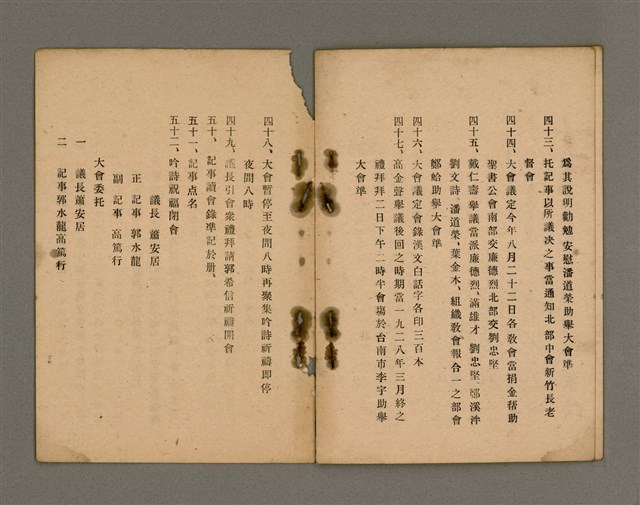 為其說明勸勉安慰潘道榮助舉大會準
四十三、托記事以所議決之事當通知北部中會新竹長老
督會
四十四、大會議定今年八月二十二日各敎會當捐金帮助
聖書公會南部交廉德烈北部交劉忠堅
四十五、戴仁壽舉議當派廉德烈、滿雄才、劉忠堅、鄭溪泮
劉文詩、潘道榮、葉金木、組織敎會報合一之部會
鄭蛤助舉大會準
四十六、大會議定會錄漢文白話字各印三百本
四十七、高金聲舉議後回之時期當一九二八年三月終之
禮拜拜二日下午二時半會場於台南市李宇助舉
大會準
四十八、大會暫停至夜間八時再聚集吟詩祈禱即停
夜間八時
四十九、議長引會衆禮拜請郭希信祈禱開會
五十、記事讀會錄準記於册、
五十一、記事点名
五十二、吟詩祝福閉會
議長 蕭安居
正 記事 郭水龍
副 記事 高篤行
大會委托
一 議長蕭安居
二 記事郭水龍高篤行